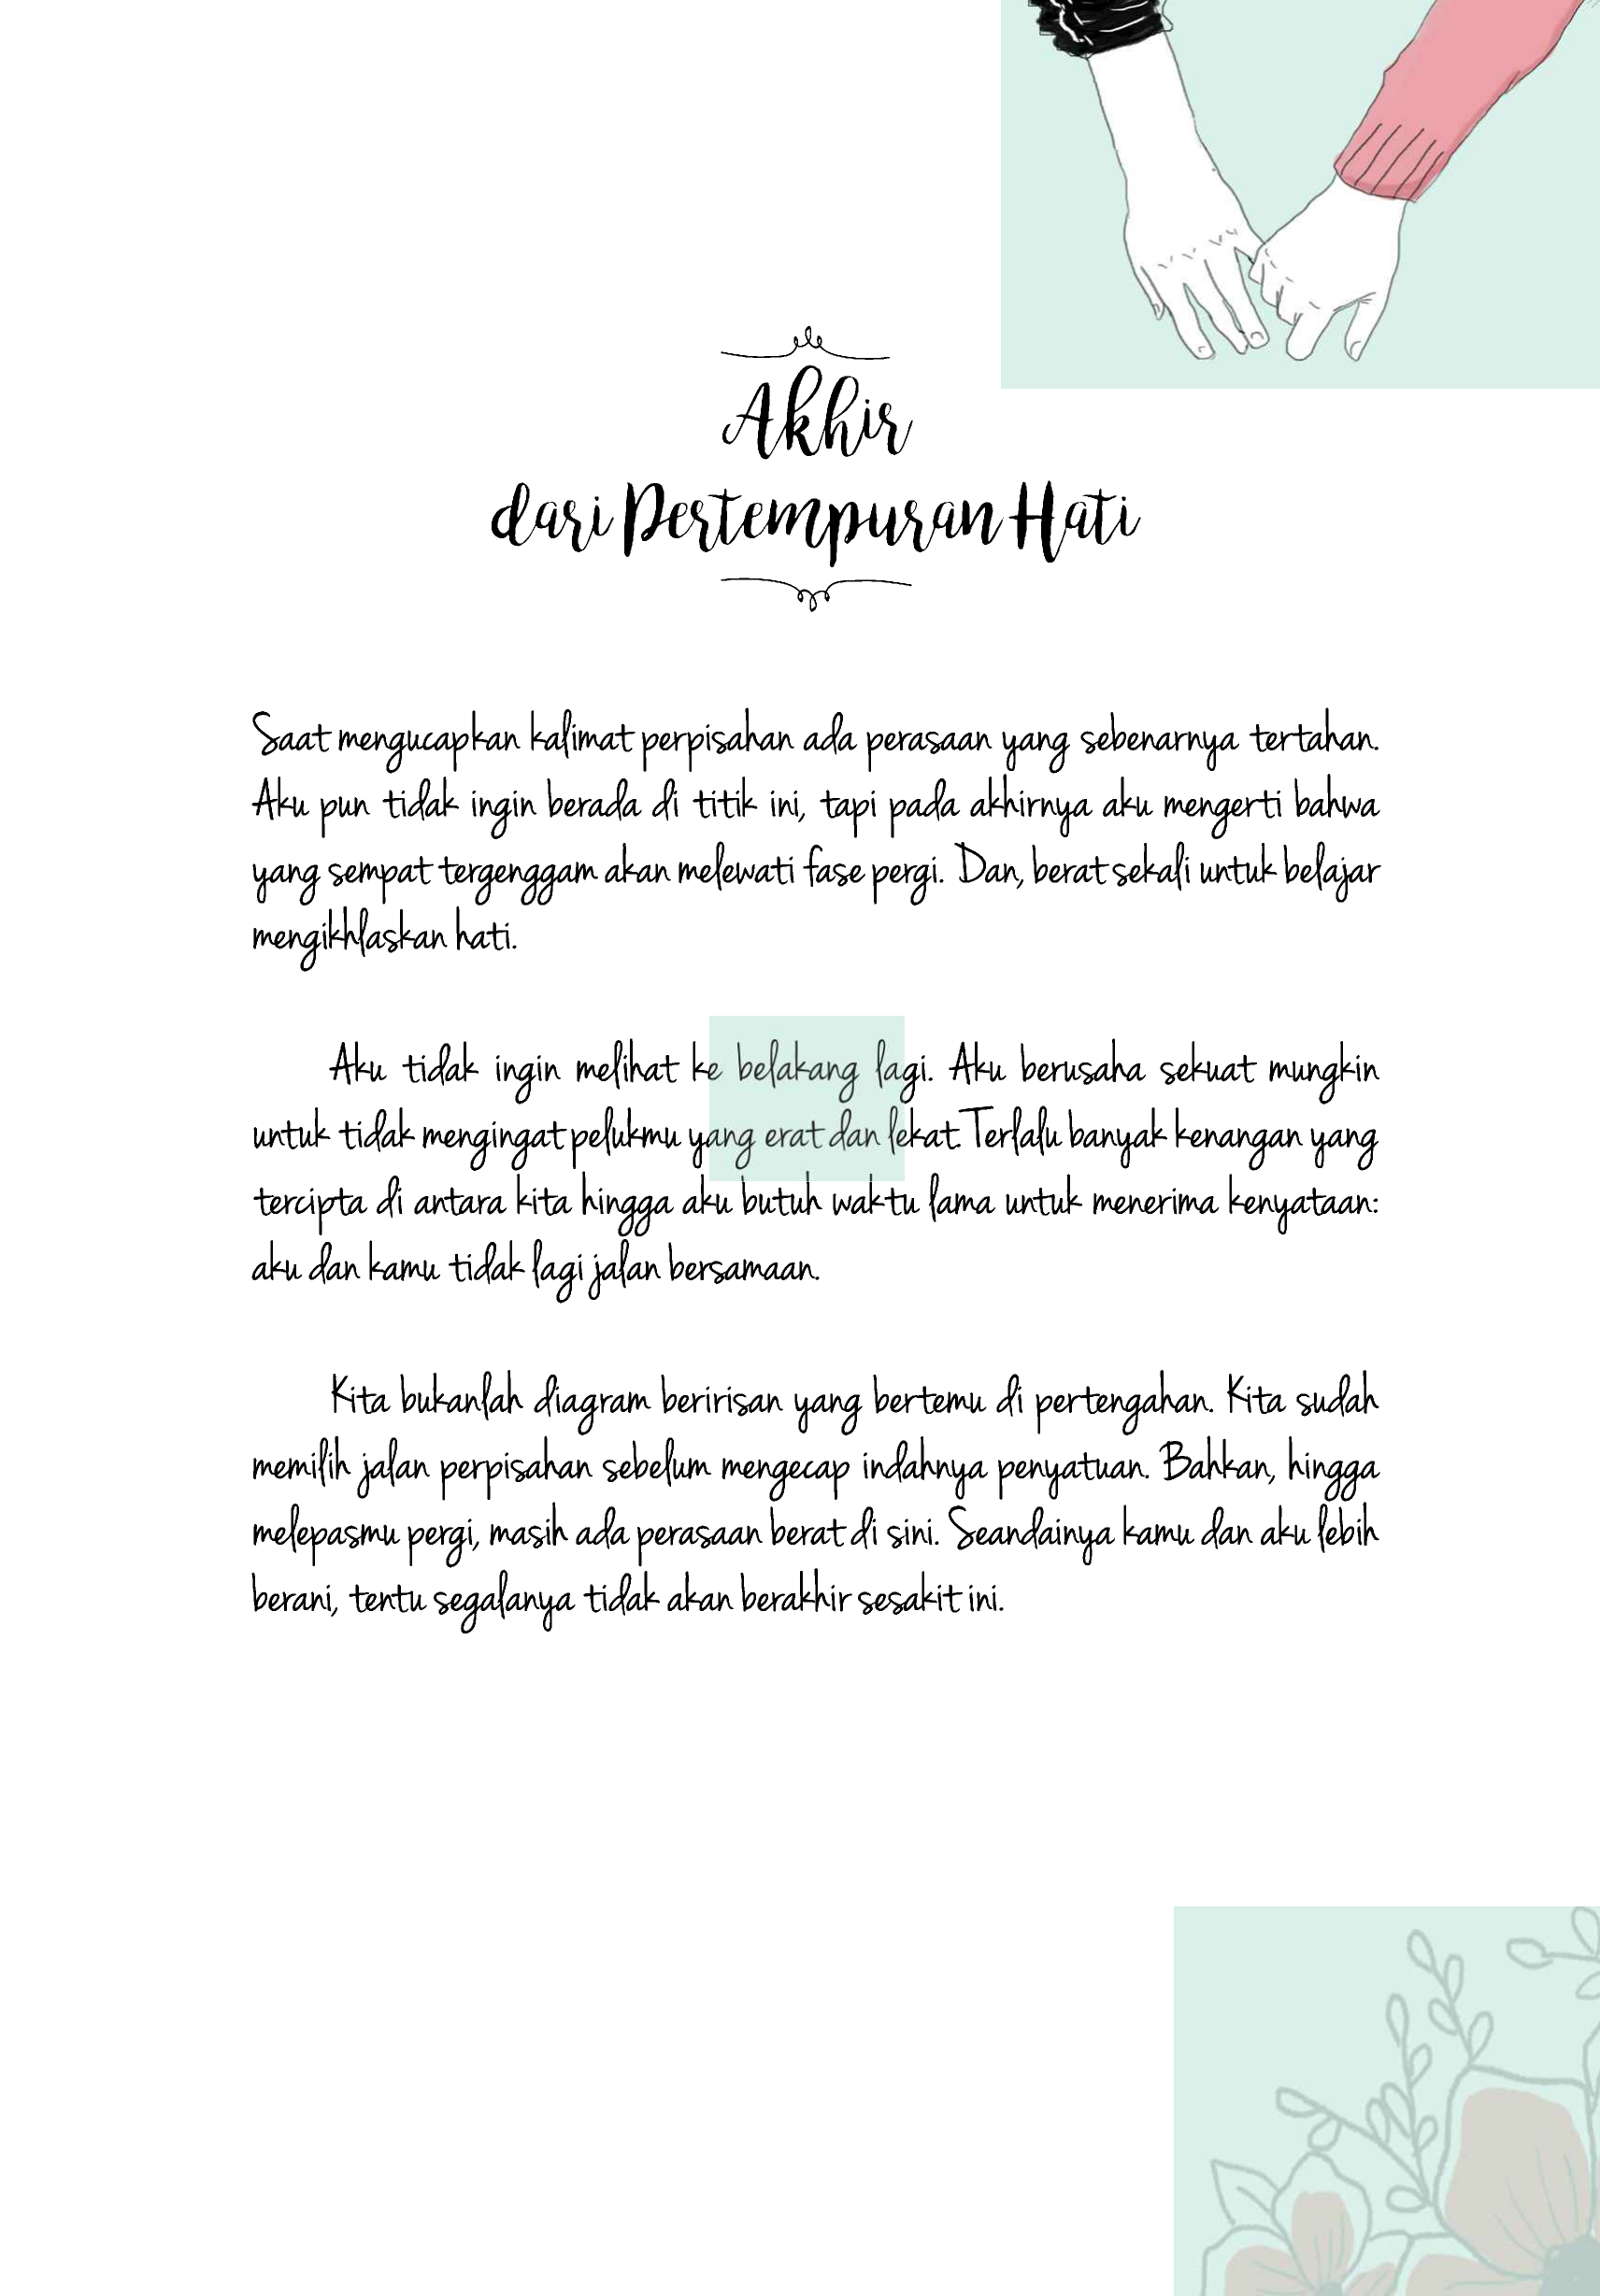 Akhir
dari Pertempuran Hati
Saat mengucapkan kalimat perpisahan ada perasaan yang sebenarnya tertahan.
Aku pun tidak ingin berada di titik ini, tapi pada akhirnya aku mengerti bahwa
yang sempat tergenggam akan melewati fase pergi. Dan, berat sekali untuk belajar
mengikhlaskan hati.
Aku tidak ingin melihat ke belakang lagi. Aku berusaha sekuat mungkin
untuk tidak mengingat pelukmu yang erat dan lekat. Terlalu banyak kenangan yang
tercipta di antara kita hingga aku butuh waktu lama untuk menerima kenyataan:
aku dan kamu tidak lagi jalan bersamaan.
Kita bukanlah diagram beririsan yang bertemu di pertengahan. Kita sudah
memilih jalan perpisahan sebelum mengecap indahnya penyatuan. Bahkan, hingga
melepasmu pergi, masih ada perasaan berat di sini. Seandainya kamu dan aku lebih
berani, tentu segalanya tidak akan berakhir sesakit ini.